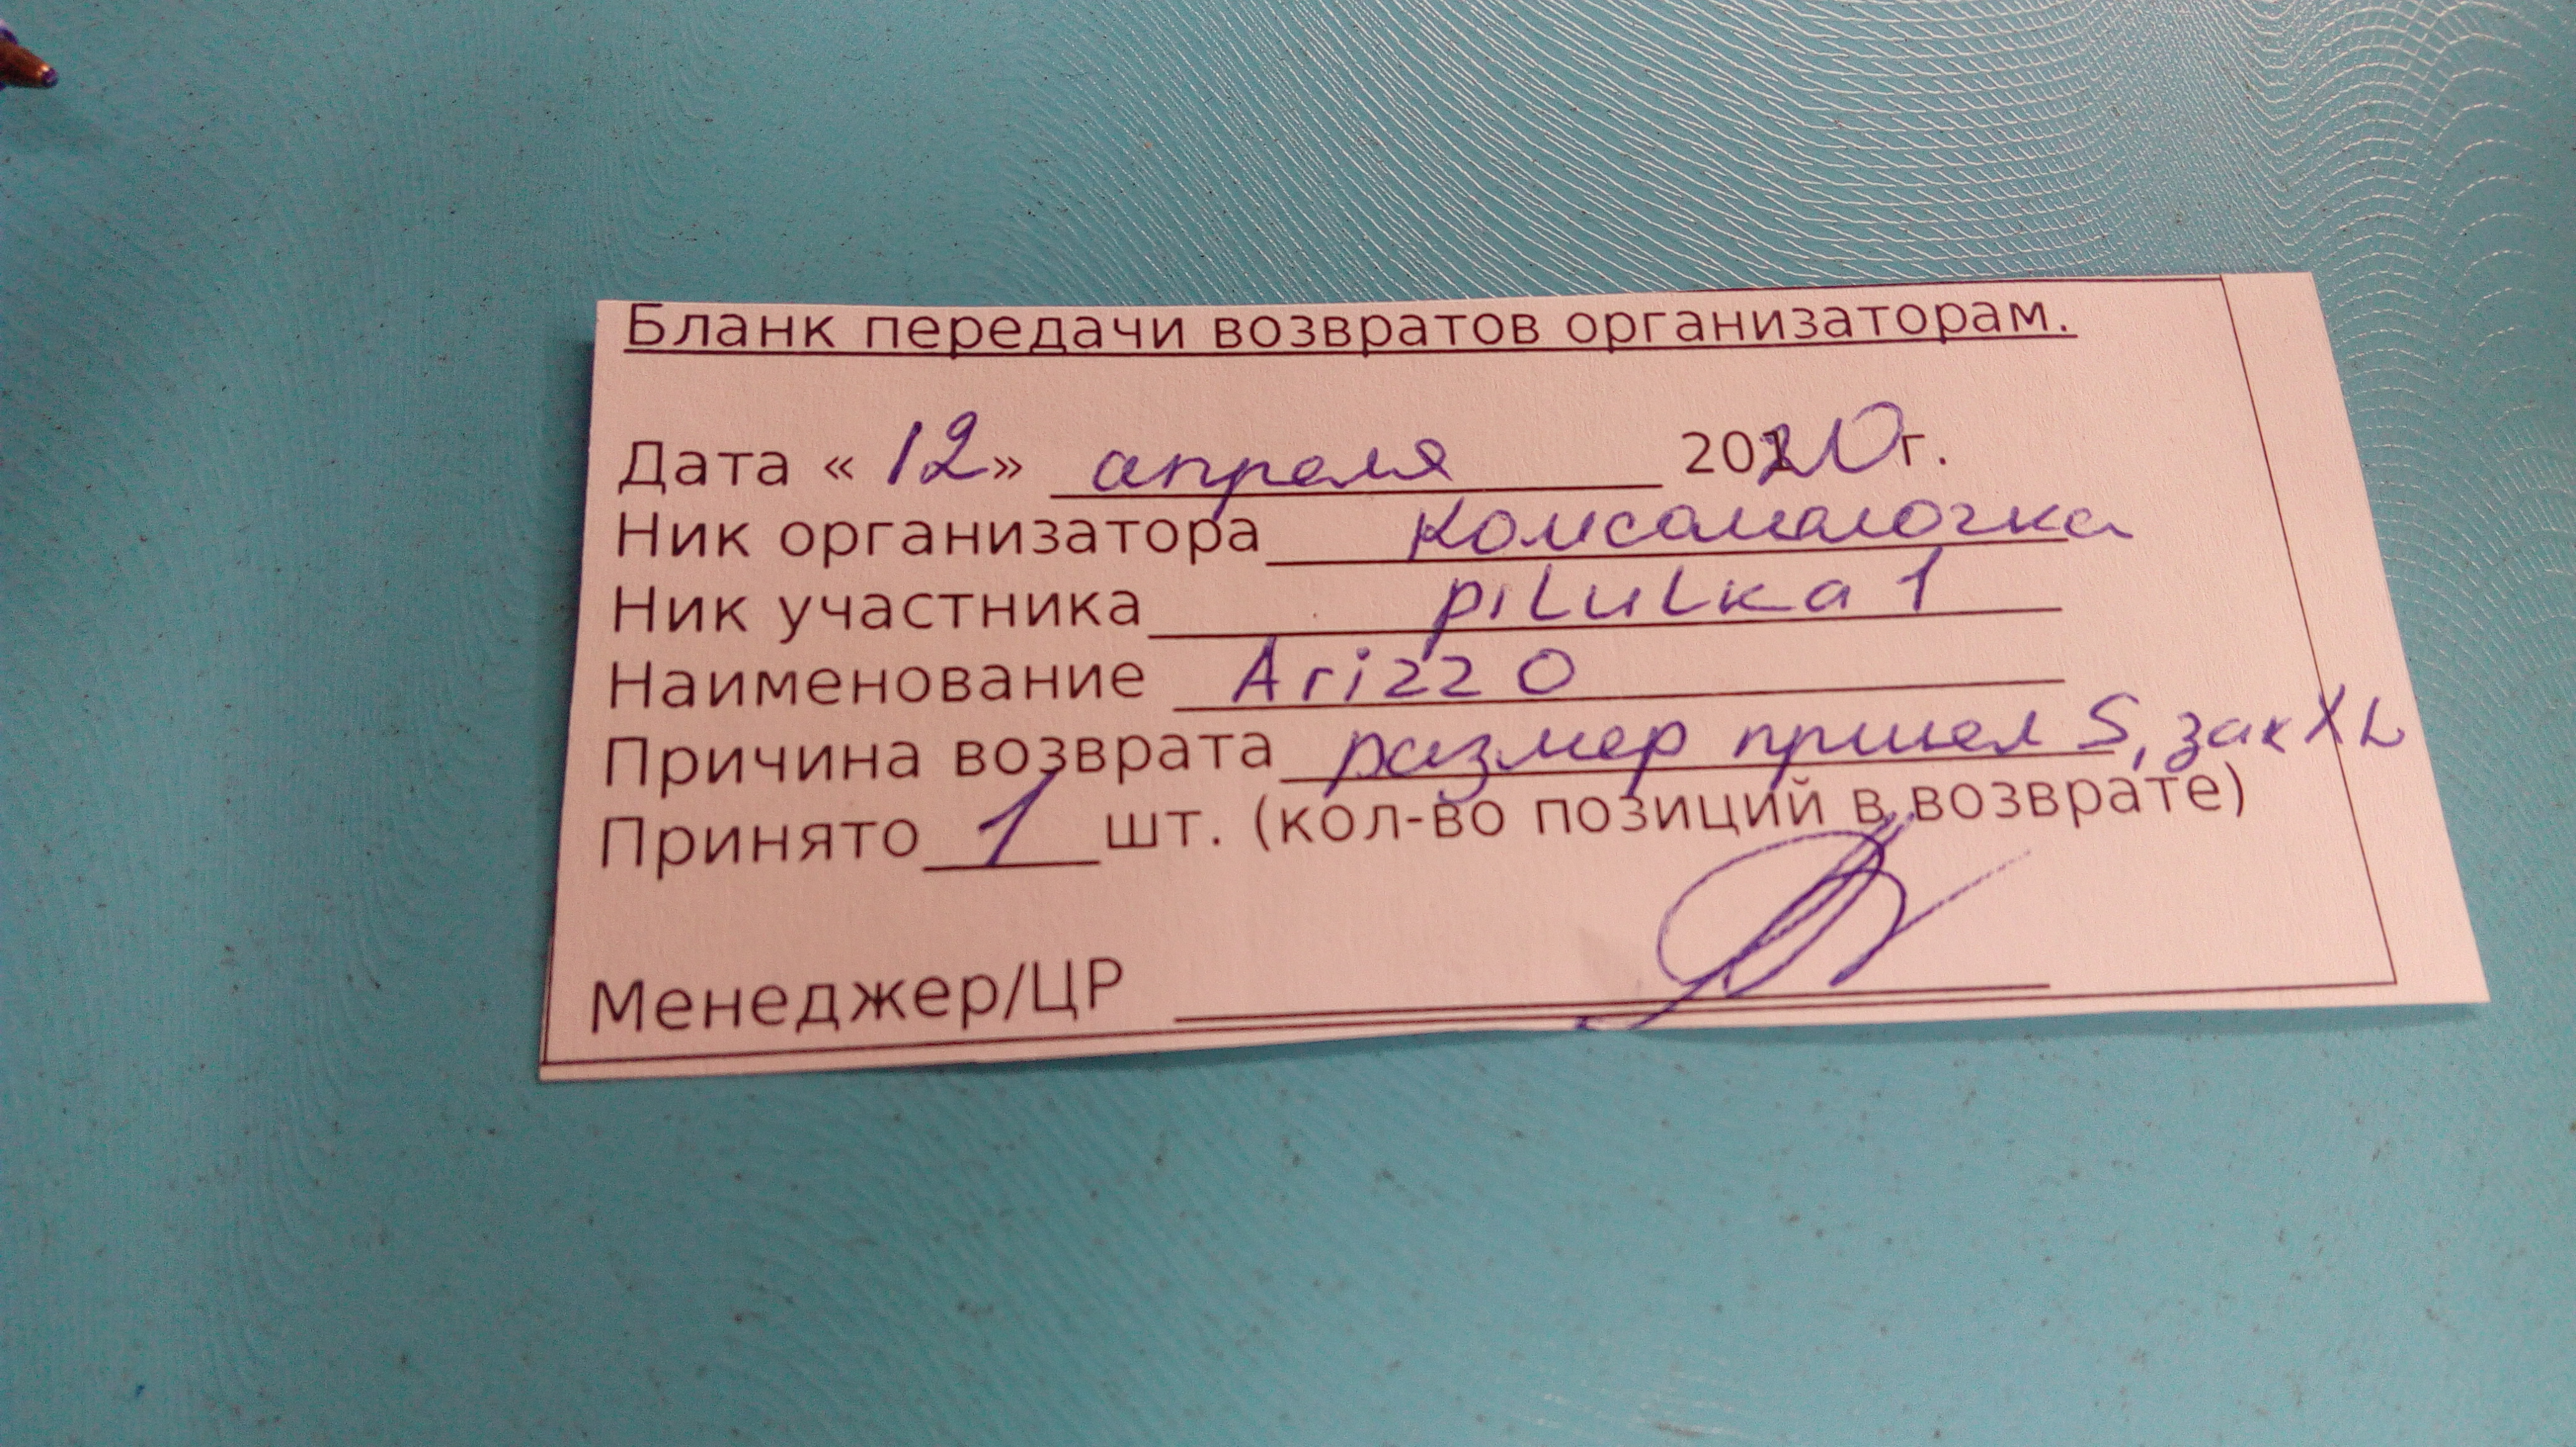 Бланк передачи возвратов организаторам.
Дата « 12» апреля 2020г.
Ник организатора комсомолочка
Ник участника piLuLka1
Наименование Arizzo
Причина возврата размер пришел S, зак XL
Принято 1 шт. (кол-во позиций в возврате)
Менеджер/ЦР